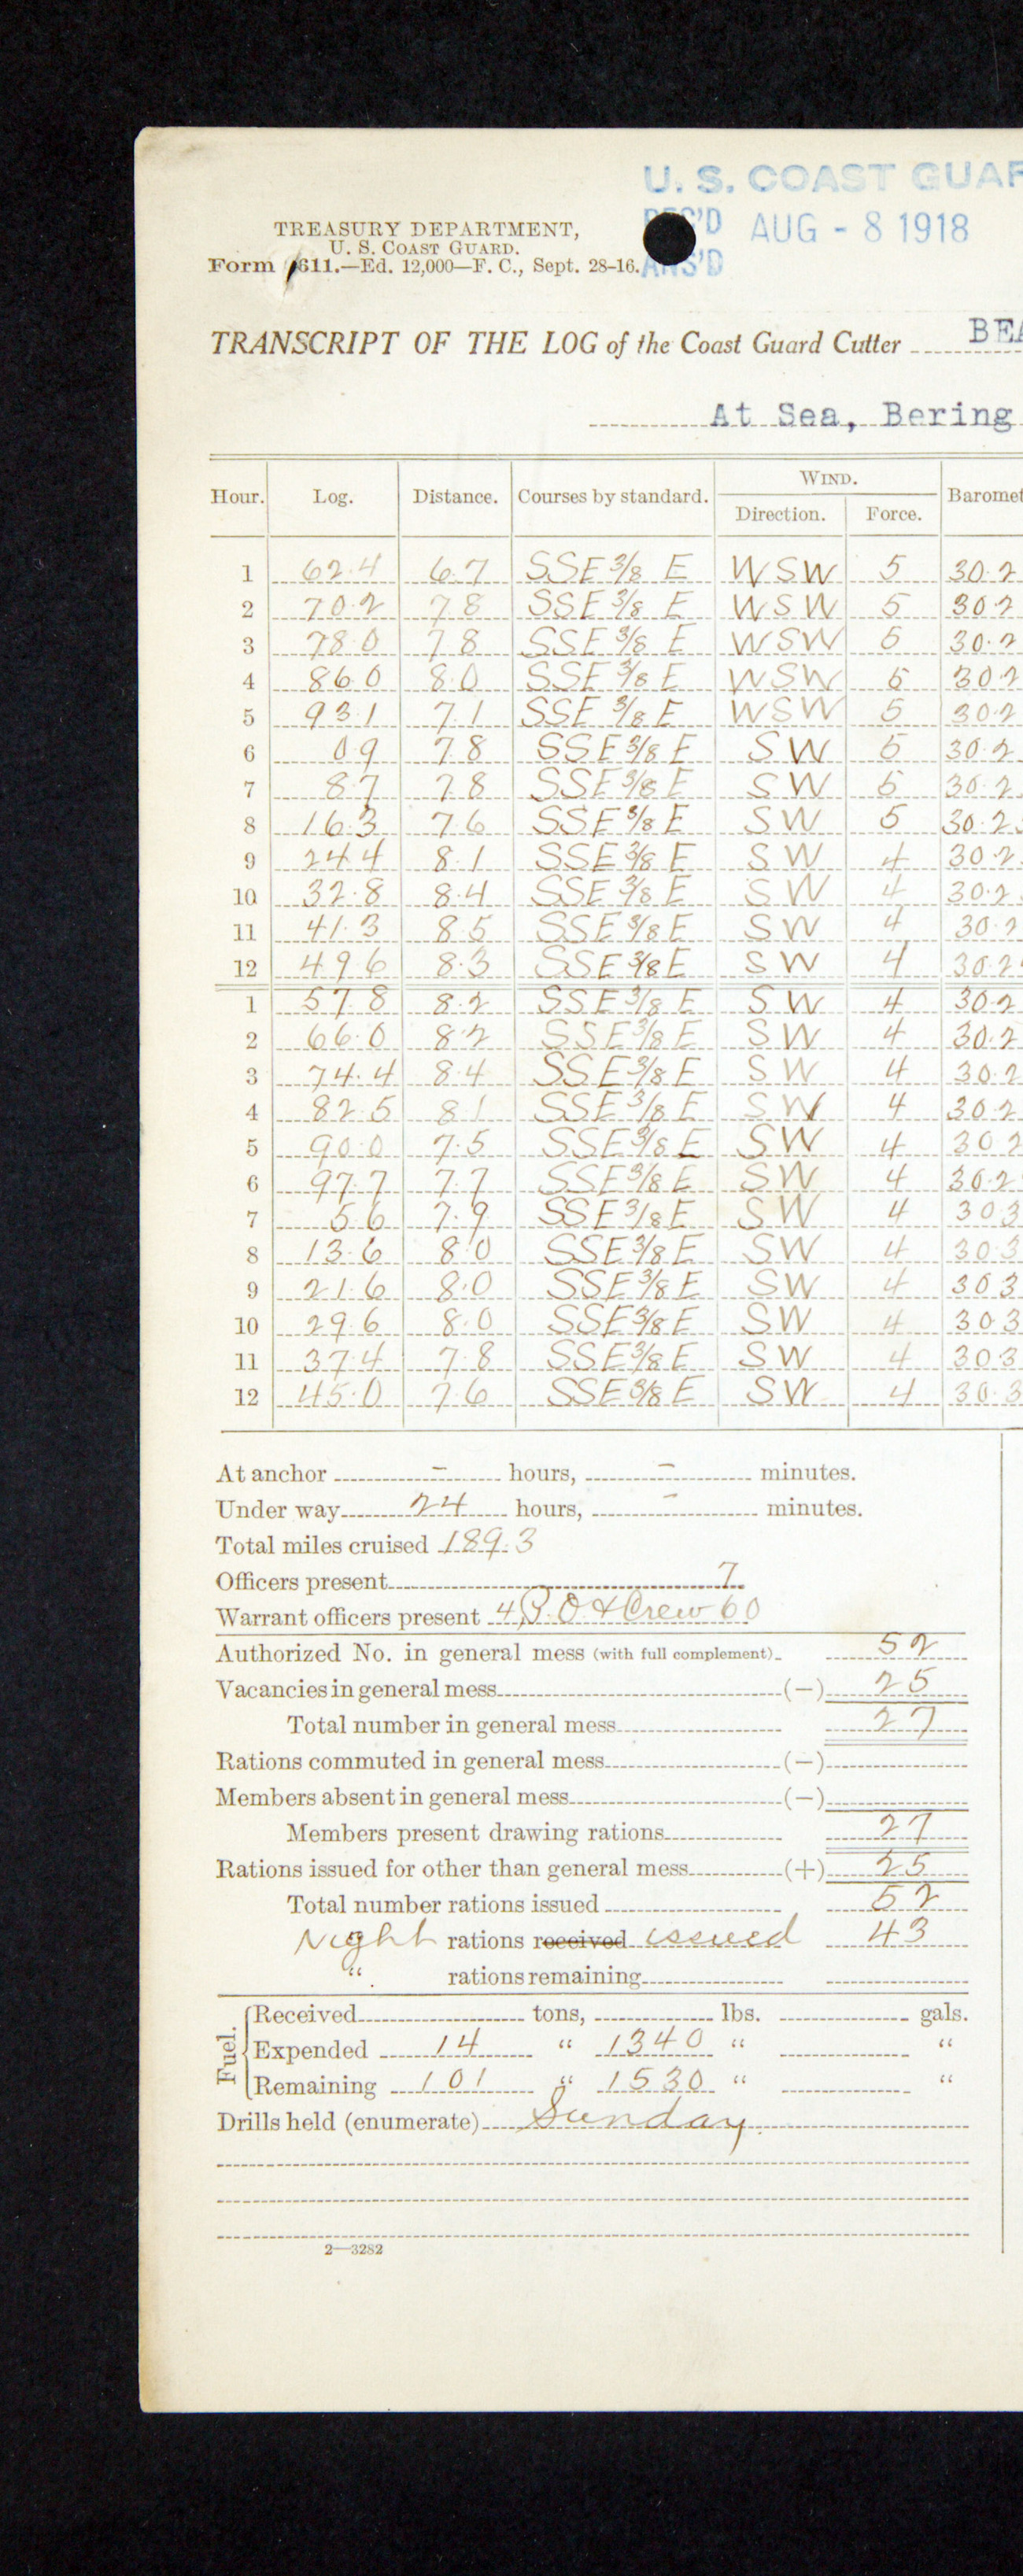 U. S. COAST GUAR
REC'D AUG - 8 1918
ANS'D
TREASURY DEPARTMENT,
U. S. COAST GUARD.
Form 611.—Ed. 12,000—F. C., Sept. 28-16.
TRANSCRIPT OF THE LOG of the Coast Guard Cutter BEA
At Sea, Bering
Hour. Log. Distance. Courses by standard. WIND. Baromet
Direction. Force.
1 62.4 6.7 SSE 3/8 E WSW 5 30.2
2 70.2 7.8 SSE 3/8 E WSW 5 30.2
3 78.0 7.8 SSE 3/8 E WSW 5 30.2
4 86.0 8.0 SSE 3/8 E WSW 5 30.2
5 93.1 7.1 SSE 3/8 E WSW 5 30.2
6 0.9 7.8 SSE 3/8 E SW 5 30.2
7 8.7 7.8 SSE 3/8 E SW 5 30.2
8 16.3 7.6 SSE 3/8 E SW 5 30.2
9 24.4 8.1 SSE 3/8 E SW 4 30.2
10 32.8 8.4 SSE 3/8 E SW 4 30.2
11 41.3 8.5 SSE 3/8 E SW 4 30.2
12 49.6 8.3 SSE 3/8 E SW 4 30.2
1 57.8 8.2 SSE 3/8 E SW 4 30.2
2 66.0 8.2 SSE 3/8 E SW 4 30.2
3 74.4 8.4 SSE 3/8 E SW 4 30.2
4 82.5 8.1 SSE 3/8 E SW 4 30.2
5 90.0 7.5 SSE 3/8 E SW 4 30.2
6 97.7 7.7 SSE 3/8 E SW 4 30.2
7 5.6 7.9 SSE 3/8 E SW 4 30.3
8 13.6 8.0 SSE 3/8 E SW 4 30.3
9 21.6 8.0 SSE 3/8 E SW 4 30.3
10 29.6 8.0 SSE 3/8 E SW 4 30.3
11 37.4 7.8 SSE 3/8 E SW 4 30.3
12 45.0 7.6 SSE 3/8 E SW 4 30.3
At anchor - hours, - minutes.
Under way 24 hours, - minutes.
Total miles cruised 189.3
Officers present 7
Warrant officers present 4, P.O. & Crew 60
Authorized No. in general mess (with full complement) 52
Vacancies in general mess (—) 25
Total number in general mess 27
Rations commuted in general mess (—)
Members absent in general mess (—)
Members present drawing rations 27
Rations issued for other than general mess (+) 25
Total number rations issued 52
Night rations received issued 43
" rations remaining
Fuel.
Received tons, lbs. gals.
Expended 14 " 1340 " "
Remaining 101 " 1530 " "
Drills held (enumerate) Sunday.
2—3282